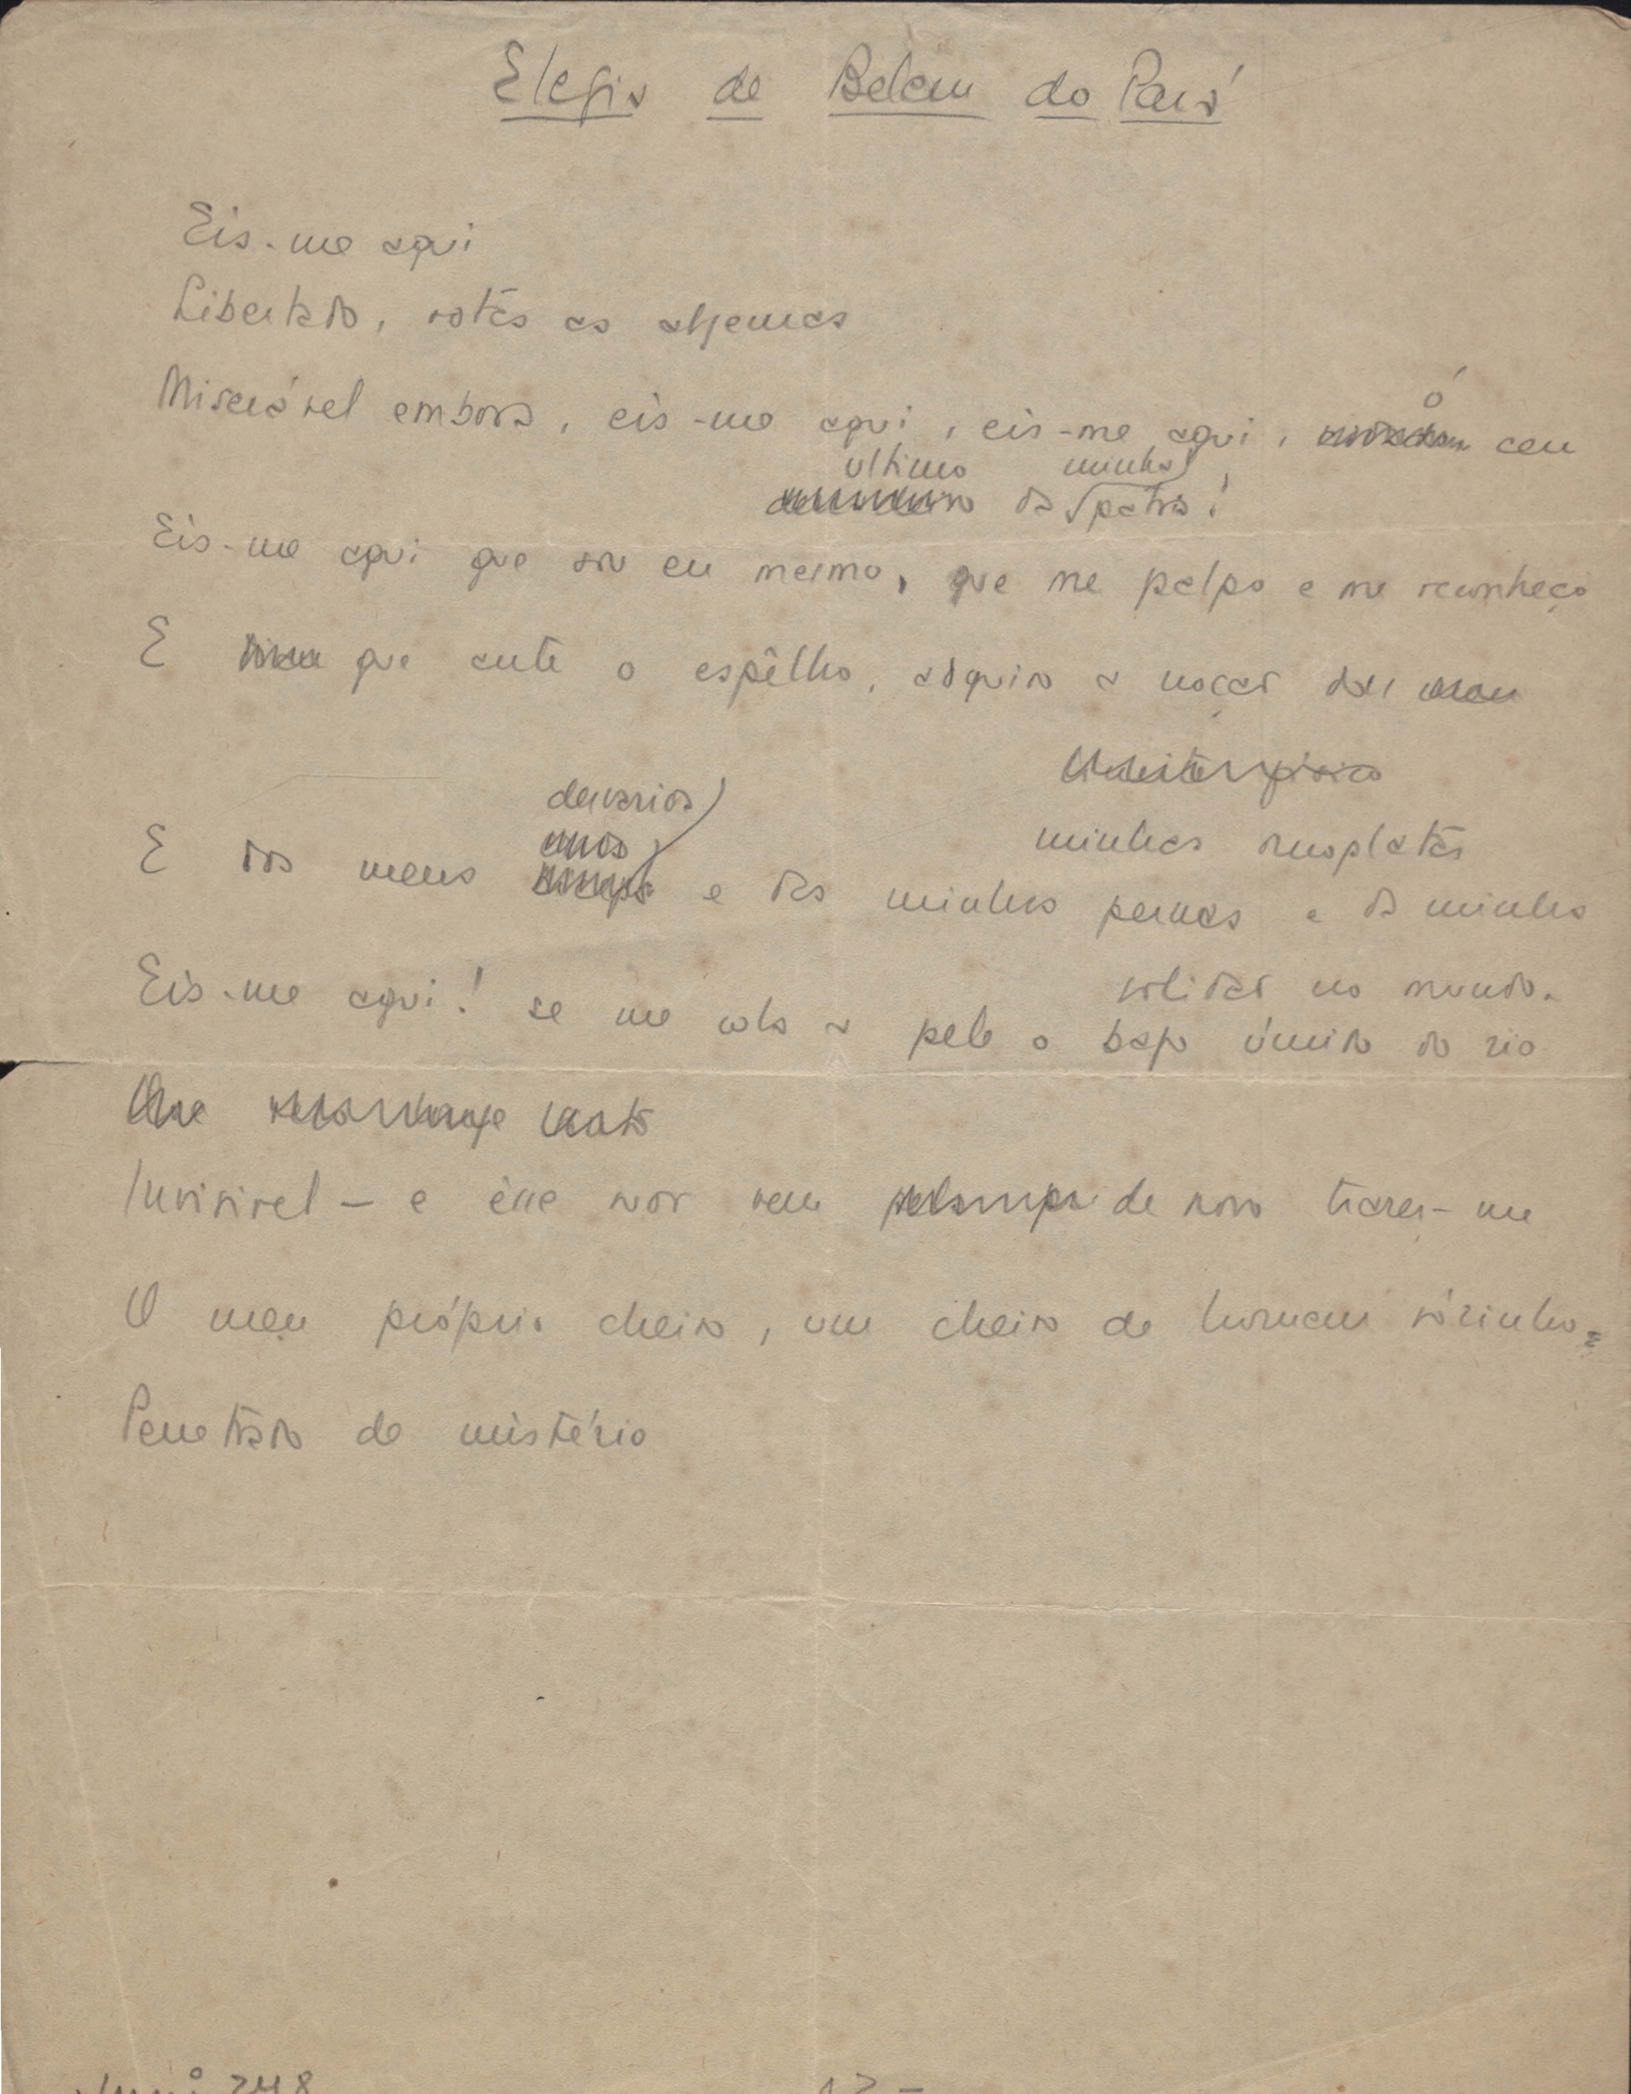 Elegia de Belém do Pará
Eis-me aqui
Libertado, rotas as algemas
Miserável embora, eis-me aqui, eis-me aqui, ó ceu
ultimo da minha patria!
Eis-me aqui que sou eu mesmo, que me palpo e me reconheço
E que ante o espêlho, adquiro a noção das
minhas omoplatas
E dos meus desvarios e das minhas pernas e da minha
solidão no mundo.
Eis-me aqui! se me cola a pele o bafo úmido do rio
Invisivel — e êsse suor vem de novo trazer-me
O meu próprio cheiro, um cheiro de homem sòzinho
Penetrado de mistério